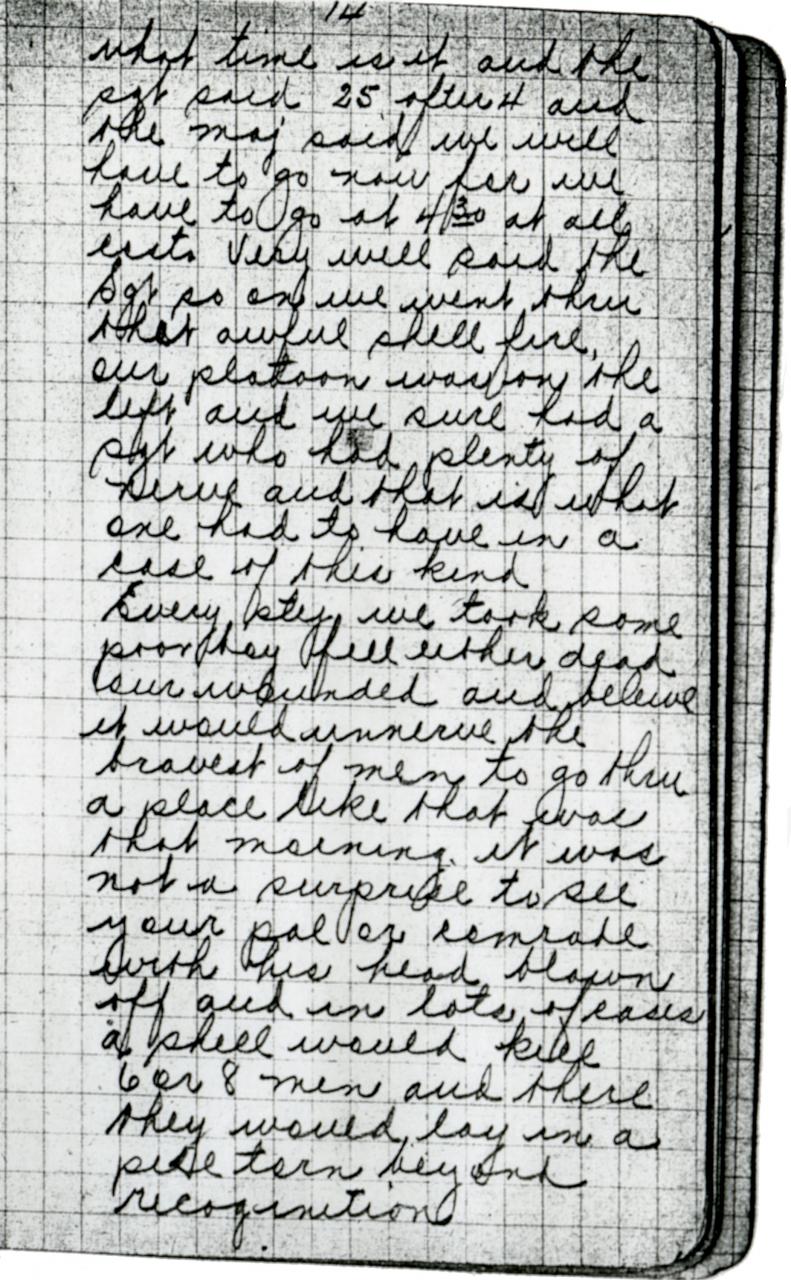 14
what time is it and the
sgt said 25 after 4 and
the maj said we will
have to go now for we
have to go at 4 30 at all
cost. Very well said the
Sgt so on we went thru
that awful shell fire,
our platoon was on the
left and we sure had a
sgt who had plenty of
nerve and that is what
one had to have in a
case of this kind
Every step we took some
poor boy fell either dead
our wounded and beleive
it would unnerve the
bravest of men to go thru
a place like that was
that morning. it was
not a surprise to see
your pal or comrade
with his head blown
off and in lots of cases
a shell would kill
6 or 8 men and there
they would lay in a
pile torn beyond
recoginition